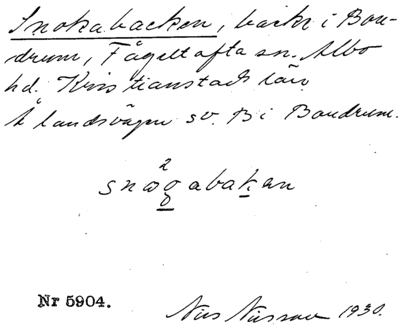 Snokabacken, backe i Bon-
drum, Fågeltofta sn. Albo
hd. Kristianstads län.
Å landsvägen sv. B i Bondrum.
2
snωgabakan
Nr 5904.
Nils 1930.